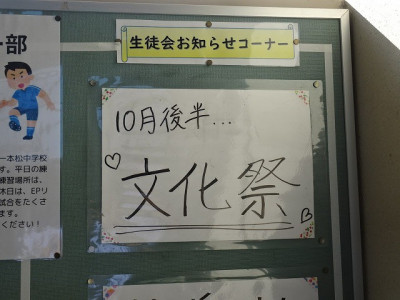 部
生徒会お知らせコーナー
10月後半...
文化祭
一本松中学校
す。平日の練
練習場所は、
休日は、EPリ
試合をたくさ
ます。
ください!